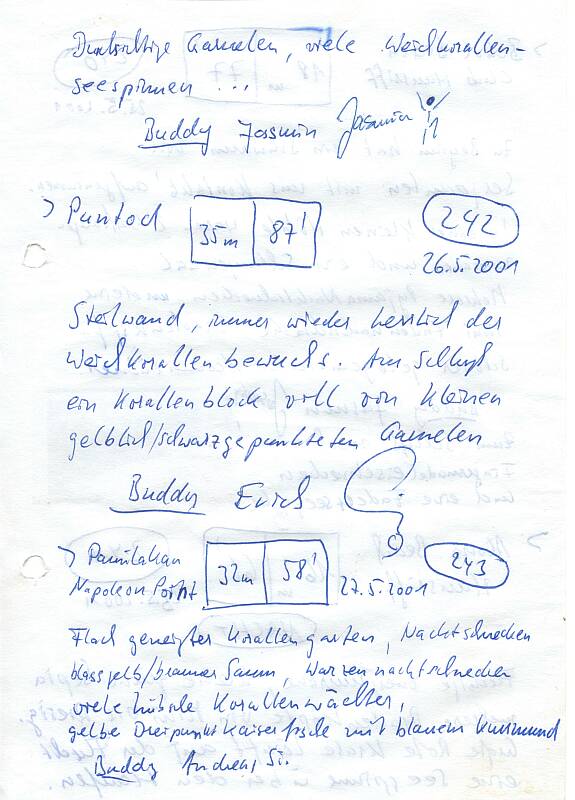 Durchsichtige Garnelen, viele Weichkorallen-
seespinnen ...
Buddy Jasmin Jasmin
> Puntod 35m 87' 242
26.5.2001
Steilwand, immer wieder herrlich der
Weichkorallenbewuchs. Am Schluß
ein Korallenblock voll von kleinen
gelblich/schwarzgepunkteten Garnelen
Buddy Erich
> Pamilakan 32m 58' 243
Napoleon Point 27.5.2001
Flach geneigter Korallengarten, Nachtschnecken
blassgelb/brauner Saum, Warzennachtschnecken
viele hübsche Korallenwächter,
gelbe Dreipunktkaiserfische mit blauem Kussmund
Buddy Andreas Si.